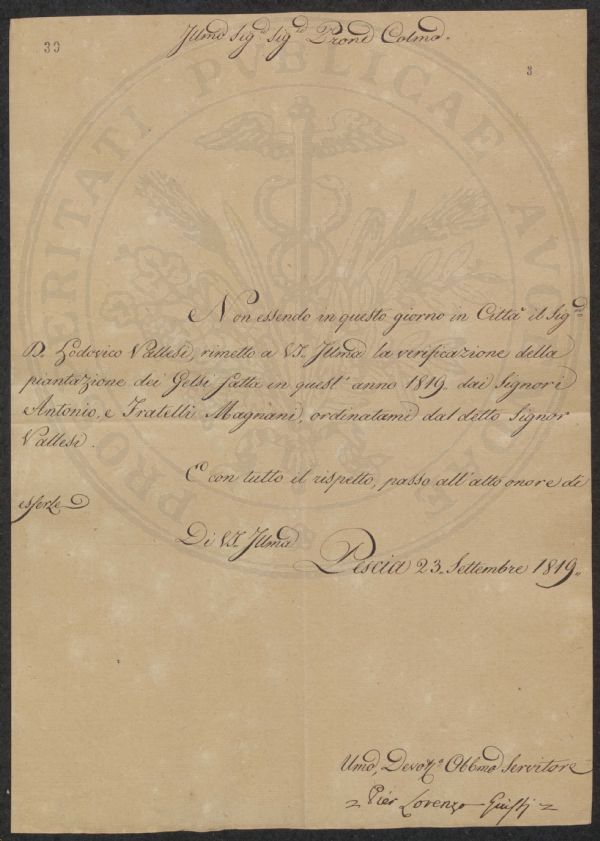 39
Illmo Sig.re Sig.re Prone Colmo.
8
Non essendo in questo giorno in Città il Sig.re
D. Lodovico Vallesi, rimetto a VS. Illma la verificazione della
piantazione dei Gelsi fatta in quest' anno 1819. dai Signori
Antonio, e Fratelli Magnani, ordinatami dal detto Signor
Vallesi.
E con tutto il rispetto, passo all' alto onore di
esserle
Di VS. Illma
Pescia 23. Settembre 1819.
Umo, Devo Obbmo Servitore
Pier Lorenzo Giusti
PROSPERITATI PUBLICAE AUGENDAE